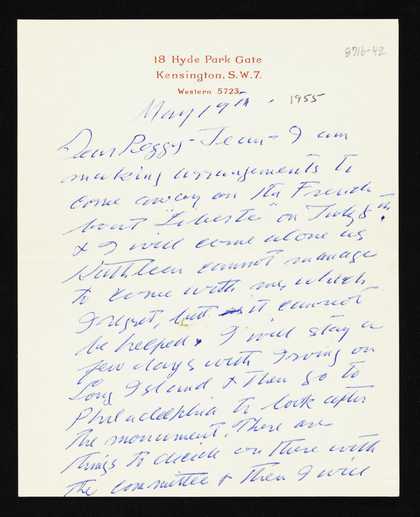 18 Hyde Park Gate
8716-42
Kensington. S.W.7.
Western 5723
May 19th. 1955
Dear Peggy-Jean - I am
making arrangements to
come away on the French
boat "Liberte" on July 8th.
& I will come alone as
Kathleen cannot manage
to come with me, which
I regret, but it cannot
be helped. I will stay a
few days with Irving on
Long Island & then go to
Philadelphia to look after
the monument. There are
things to decide on there with
the committee & then I will